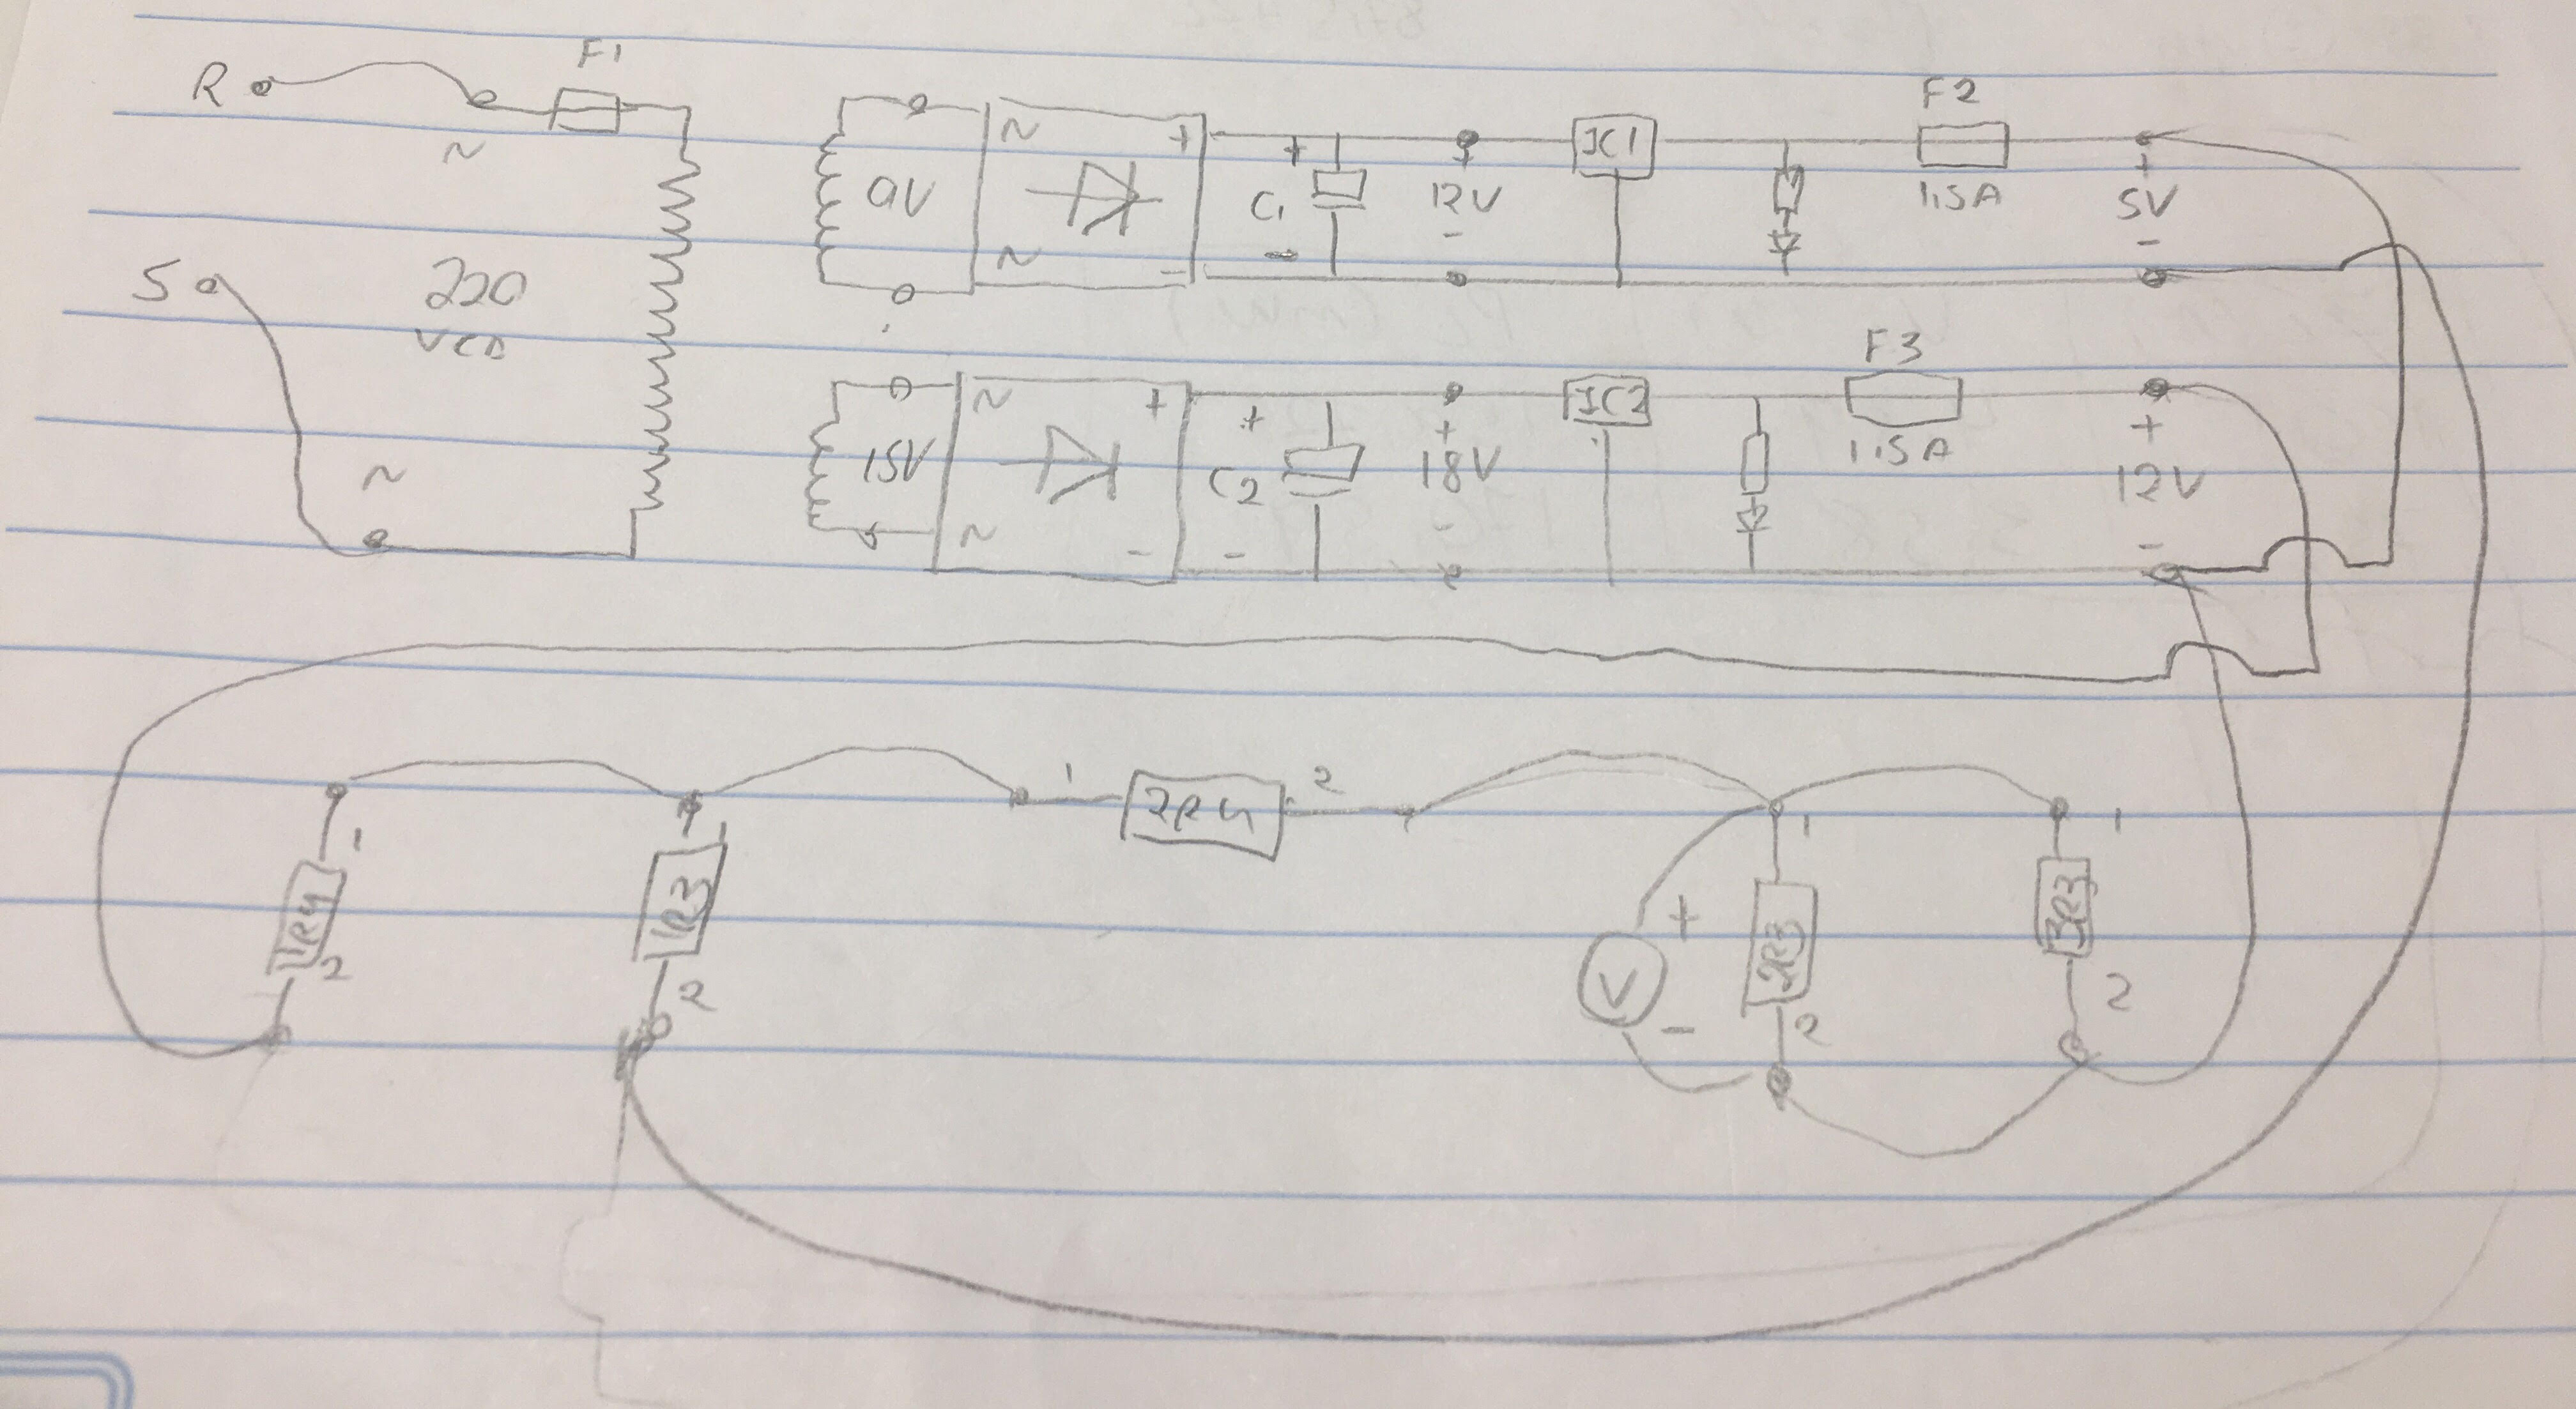 F1
R
~
S
220
VCA
~
9V
~ +
~ -
+
C1
-
+
12V
-
IC1
F2
1,5A
+
5V
-
15V
~ +
~ -
+
C2
-
+
18V
-
IC2
F3
1,5A
+
12V
-
1
1R4
2
1
1R3
2
1 2R4 2
+
V
-
1
2R3
2
1
3R3
2